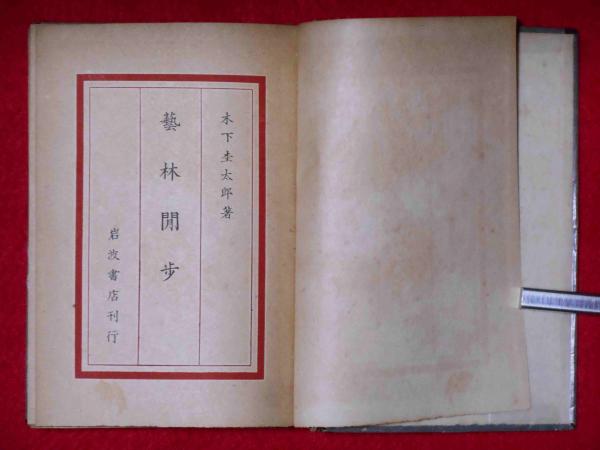 木下杢太郎著
藝林閒步
岩波書店刊行